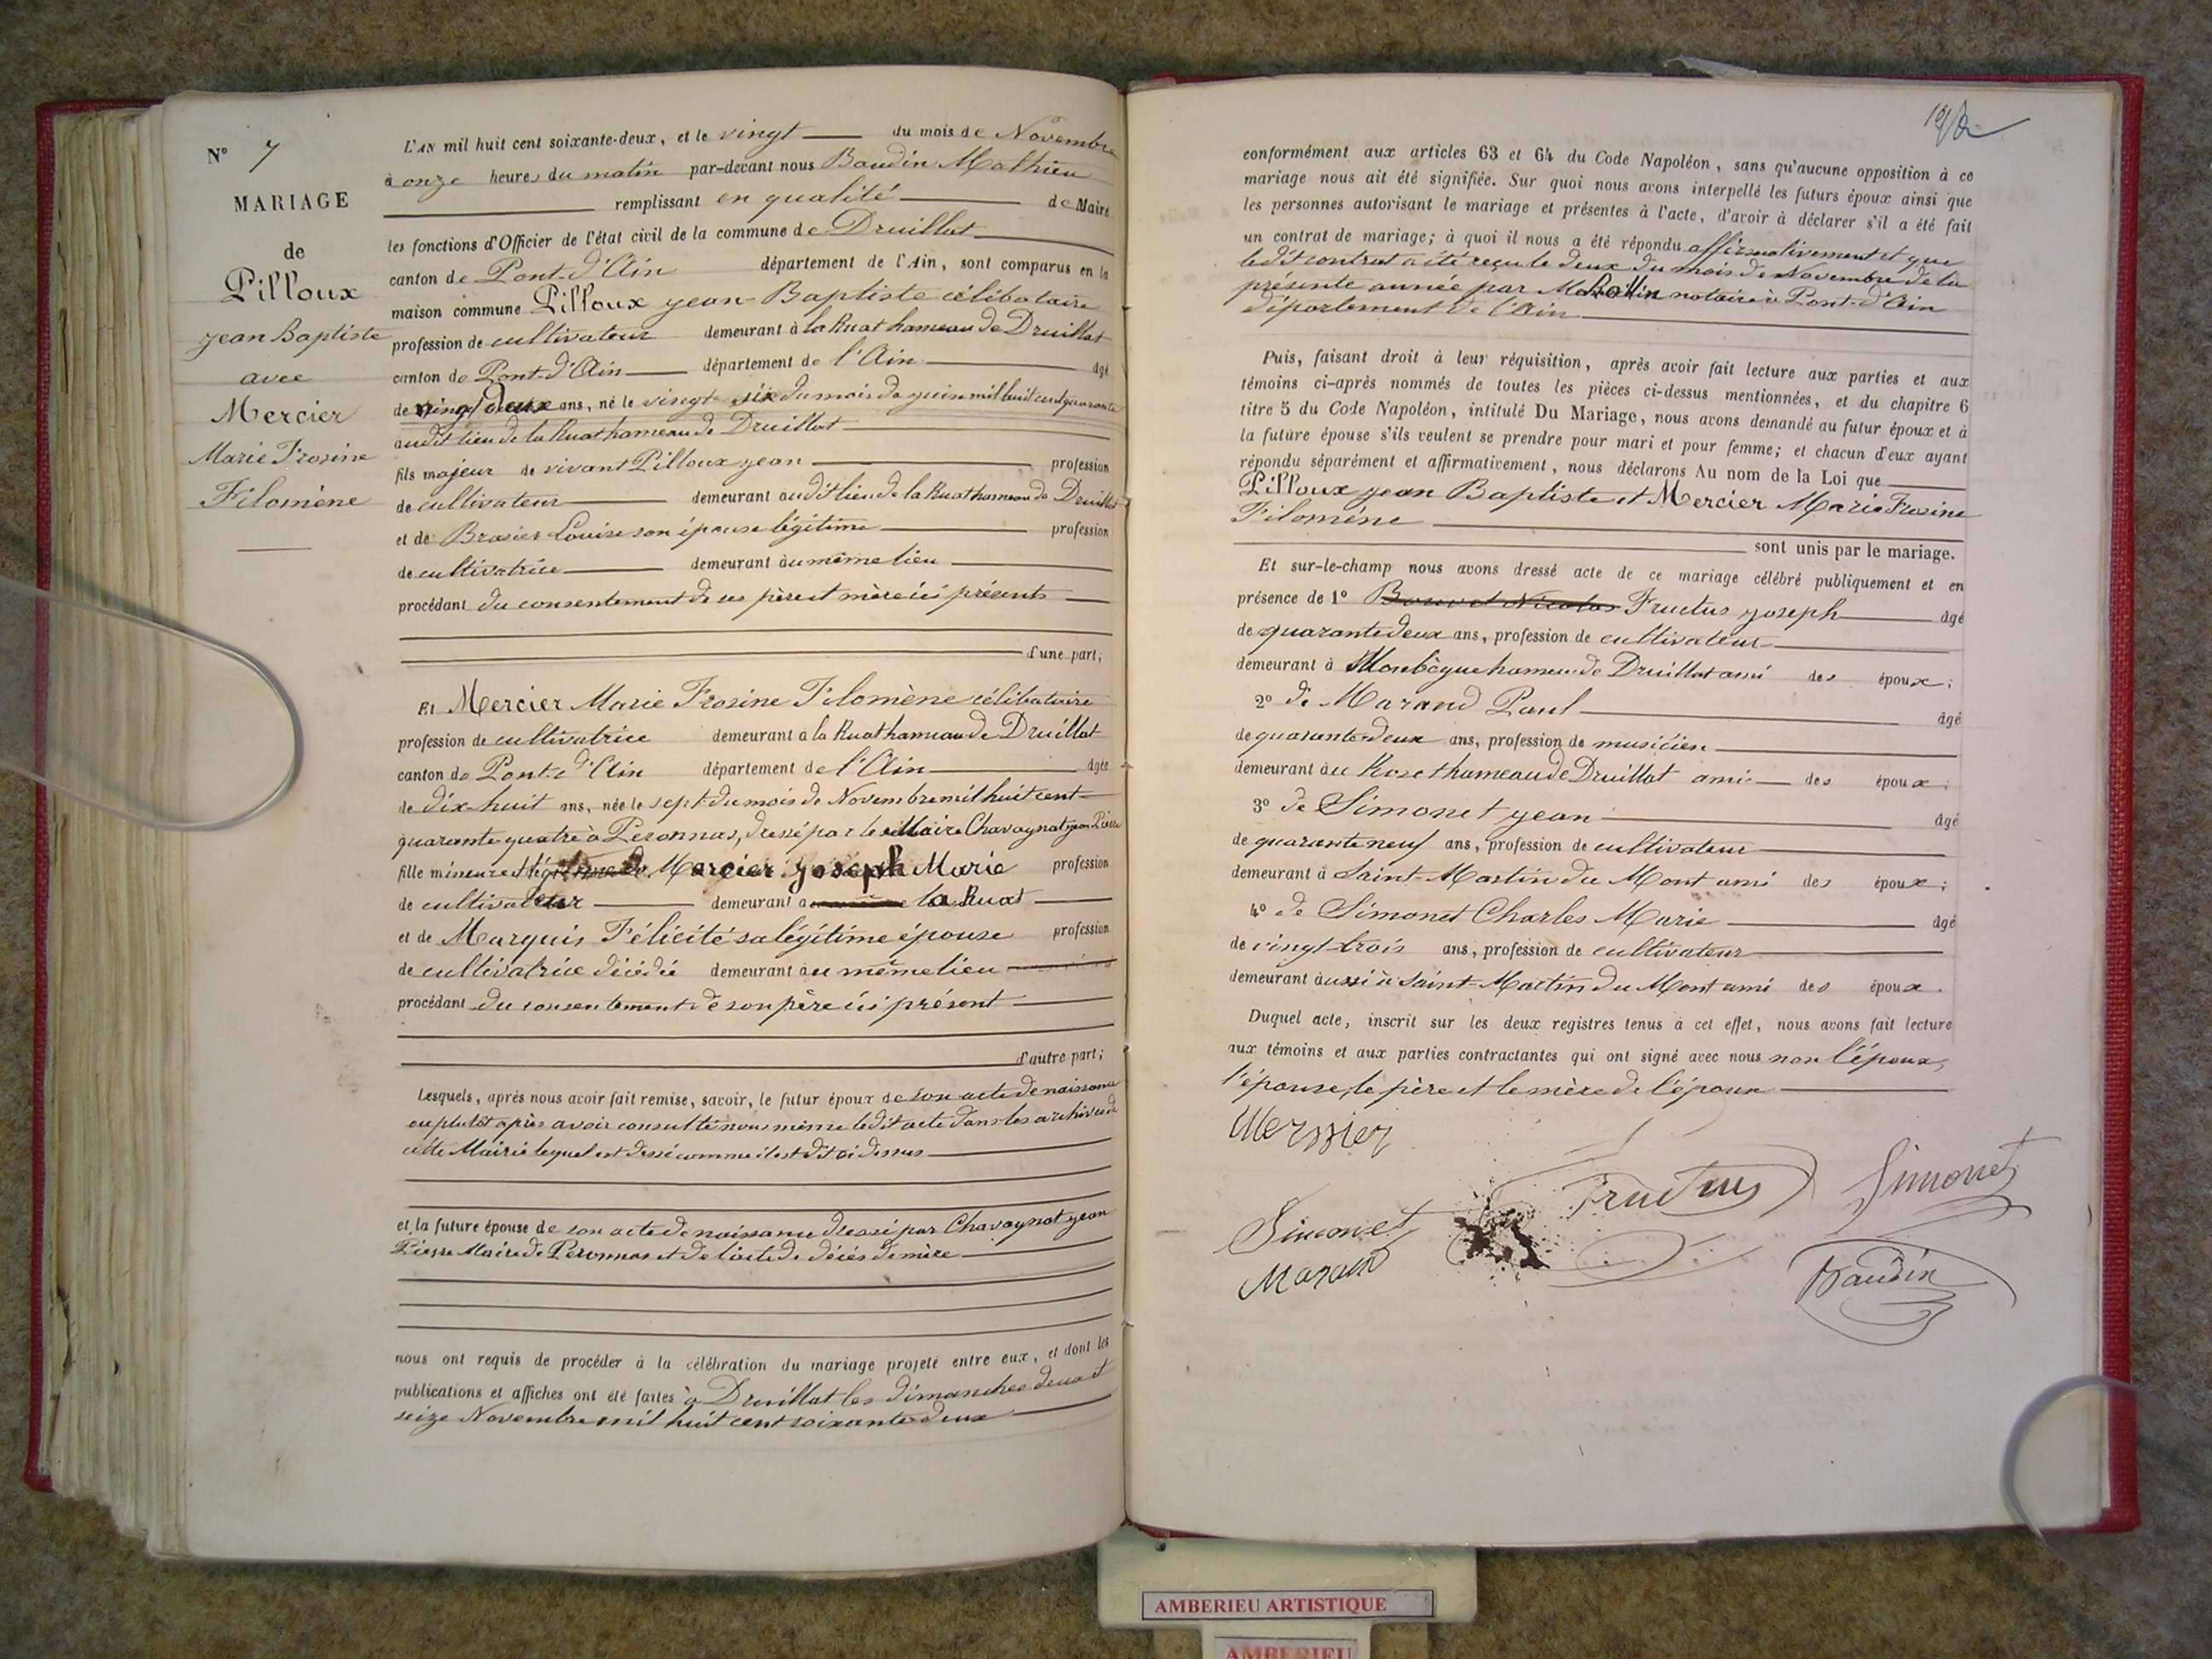 N° 7
MARIAGE
de
Pilloux
jean Baptiste
avec
Mercier
Marie Frosine
Filomène
L'AN mil huit cent soixante-deux, et le vingt du mois de Novembre
à onze heures du matin par-devant nous Baudin Mathieu
remplissant en qualité de Maire
les fonctions d'Officier de l'état civil de la commune de Druillat
canton de Pont-d'Ain département de l'Ain, sont comparus en la
maison commune Pilloux jean-Baptiste célibataire
profession de cultivateur demeurant à la Ruat hameau de Druillat
canton de Pont-d'Ain département de l'Ain âgé
de vingt deux ans, né le vingt-six du mois de juin mil huit cent quarante
audit lieu de la Ruat hameau de Druillat
fils majeur de vivant Pilloux jean profession
de cultivateur demeurant audit lieu de la Ruat hameau de Druillat
et de Brasier Louise son épouse légitime profession
de cultivatrice demeurant au même lieu
procédant du consentement de ses père et mère ici présents
d'une part;
Et Mercier Marie Frosine Filomène célibataire
profession de cultivatrice demeurant à la Ruat hameau de Druillat
canton de Pont-d'Ain département de l'Ain âgée
de dix-huit ans, née le sept du mois de Novembre mil huit cent
quarante quatre à Peronnas, dressé par le Maire Chavagnat jean Pierre
fille mineure légitime de Mercier joseph Marie profession
de cultivateur demeurant a la Ruat
et de Marquis Félicité sa légitime épouse profession
de cultivatrice décédée demeurant au même lieu
procédant du consentement de son père ici présent
d'autre part;
Lesquels, après nous avoir fait remise, savoir, le futur époux de son acte de naissance
ou plutôt après avoir consulté nous même ledit acte dans les archives de
cette Mairie lequel est dressé comme il est dit ci dessus
et la future épouse de son acte de naissance dressé par Chavagnat jean
Pierre Maire de Peronnas et de l'acte de décès de mère
nous ont requis de procéder à la célébration du mariage projeté entre eux, et dont les
publications et affiches ont été faites à Druillat les dimanches deux et
seize Novembre mil huit cent soixante deux
conformément aux articles 63 et 64 du Code Napoléon, sans qu'aucune opposition à ce
mariage nous ait été signifiée. Sur quoi nous avons interpellé les futurs époux ainsi que
les personnes autorisant le mariage et présentes à l'acte, d'avoir à déclarer s'il a été fait
un contrat de mariage; à quoi il nous a été répondu affirmativement et que
le dit contrat a été reçu le deux du mois de Novembre de la
présente année par notaire à Pont-d'Ain
département de l'Ain
Puis, faisant droit à leur réquisition, après avoir fait lecture aux parties et aux
témoins ci-après nommés de toutes les pièces ci-dessus mentionnées, et du chapitre 6
titre 5 du Code Napoléon, intitulé Du Mariage, nous avons demandé au futur époux et à
la future épouse s'ils veulent se prendre pour mari et pour femme; et chacun d'eux ayant
répondu séparément et affirmativement, nous déclarons Au nom de la Loi que
Pilloux jean Baptiste et Mercier Marie Frosine
Filomène
sont unis par le mariage.
Et sur-le-champ nous avons dressé acte de ce mariage célébré publiquement et en
présence de 1° Fructus joseph âgé
de quarante deux ans, profession de cultivateur
demeurant à Monbègue hameau de Druillat ami des époux;
2° de Marand Paul âgé
de quarante deux ans, profession de musicien
demeurant au Roset hameau de Druillat ami des époux;
3° de Simonet jean âgé
de quarante neuf ans, profession de cultivateur
demeurant à Saint-Martin du Mont ami des époux;
4° de Simonet Charles Marie âgé
de vingt trois ans, profession de cultivateur
demeurant aussi à Saint-Martin du Mont ami des époux.
Duquel acte, inscrit sur les deux registres tenus à cet effet, nous avons fait lecture
aux témoins et aux parties contractantes qui ont signé avec nous non l'époux,
l'épouse, le père et le mère de l'époux
Merssier
Fructus
Simonet
Simonet
Maran
Baudin
AMBERIEU ARTISTIQUE
AMBERIEU